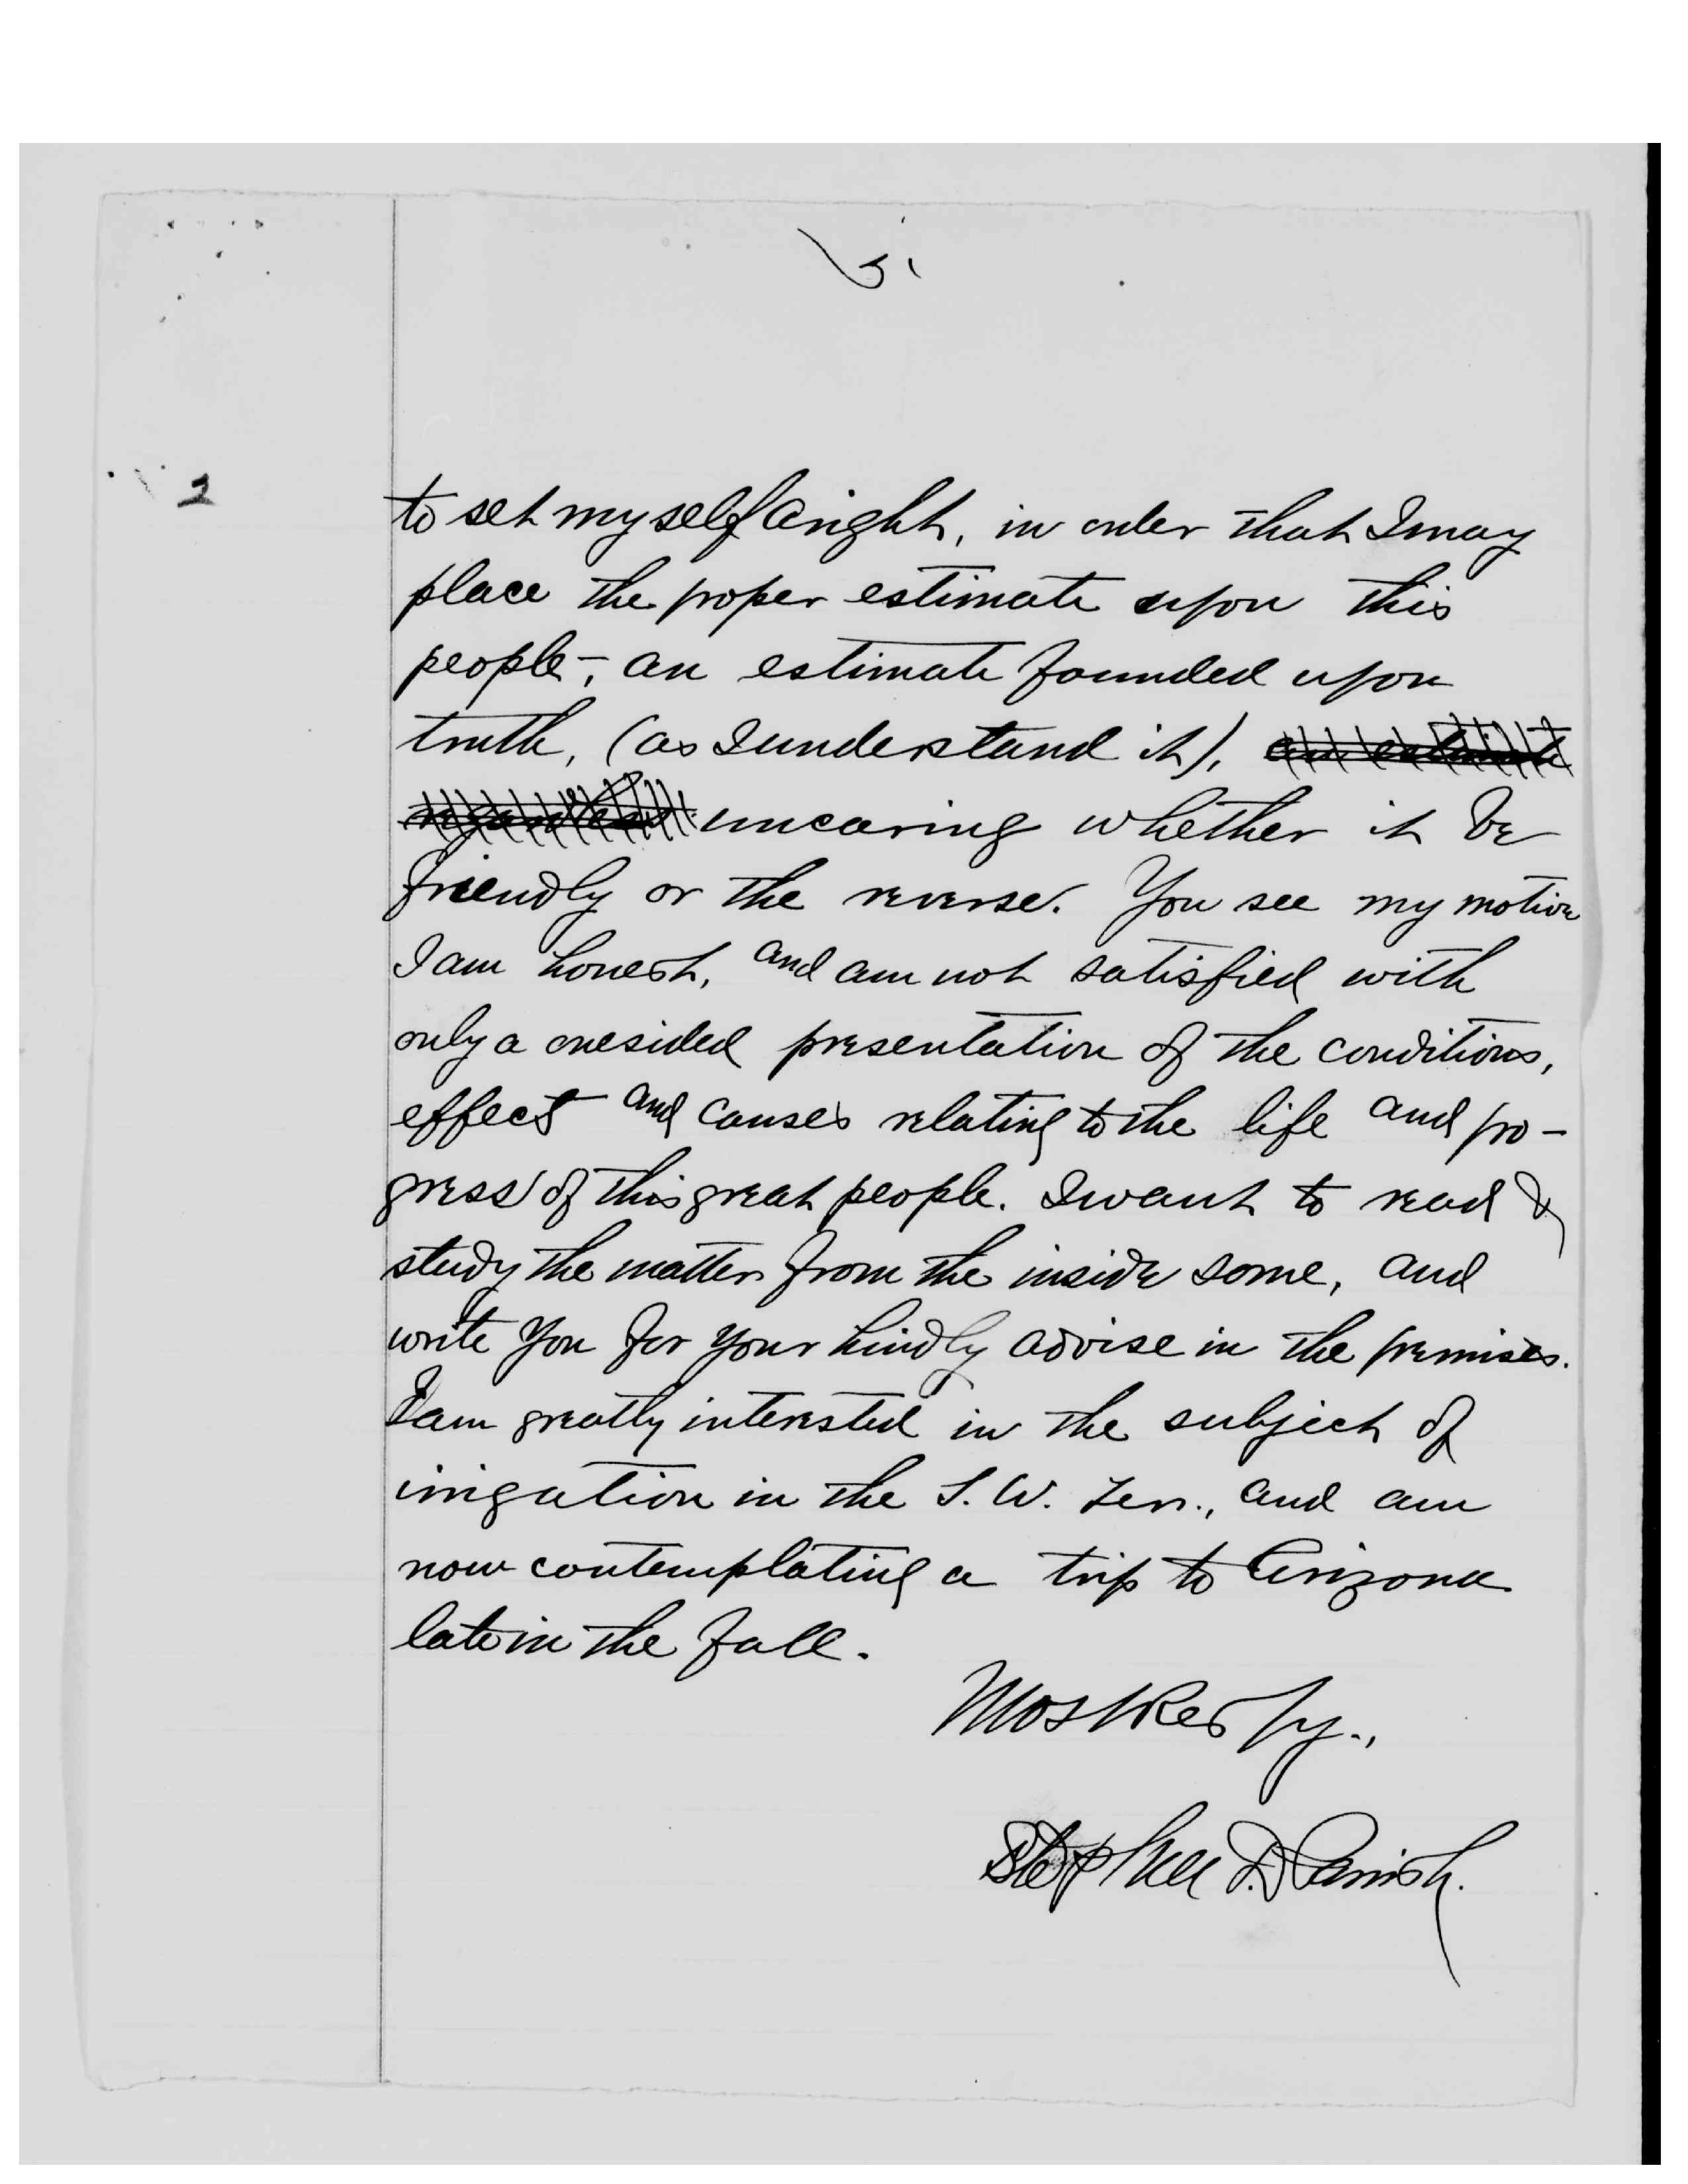 2
to set myself aright, in order that I may
place the proper estimate upon this
people-, an estimate founded upon
truth, (as I understand it), an estimate
regardless uncaring whether it be
friendly or the reverse. You see my motive
I am honest, and am not satisfied with
only a onesided presentation of the conditions,
effect and causes relating to the life and pro-
gress of this great people. I want to read &
study the matter from the inside some, and
write you for your kindly advise in the premises.
I am greatly interested in the subject of
irrigation in the S. W. Ter., and am
now contemplating a trip to Arizona
late in the fall.
Most Respy.,
Stephen F. Parrish.